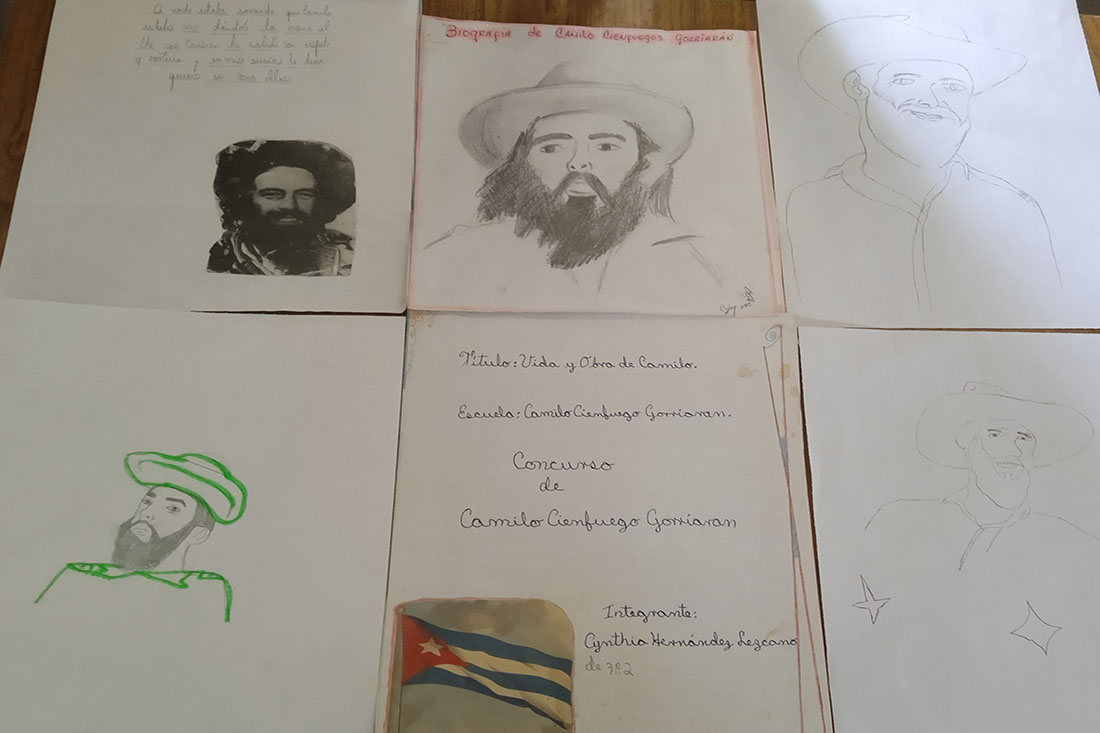 A noche estaba sonando que Camilo
estaba vivo dándole la mano al
Che yo tambien lo salude con respeto
y cortesia y en mis sueños le decia
quiero ser como Ellos
Biografia de Camilo Cienfuegos Gorriarán
Titulo: Vida y Obra de Camilo.
Escuela: Camilo Cienfuego Gorriaran.
Concurso
de
Camilo Cienfuego Gorriaran
Integrante:
Cynthia Hernández Lezcano
de